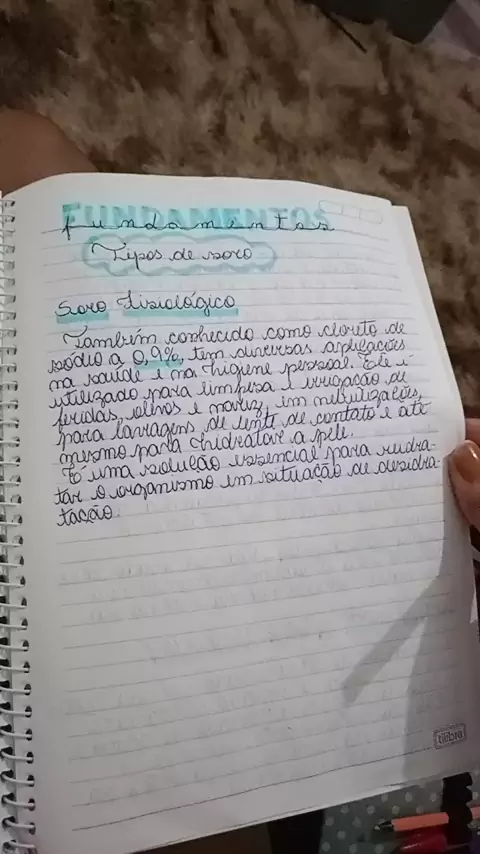 FUNDAMENTOS
fundamentos
Tipos de soro
Soro fisiológico
Também conhecido como cloreto de
sódio a 0,9%, tem diversas aplicações
na saúde e na higiene pessoal. Ele é
utilizado para limpeza e irrigação de
feridas, olhos e nariz, em nebulizações,
para lavagens de lente de contato e até
mesmo para hidratar a pele.
É uma solução essencial para reidra-
tar o organismo em situação de desidra-
tação.
tilibra